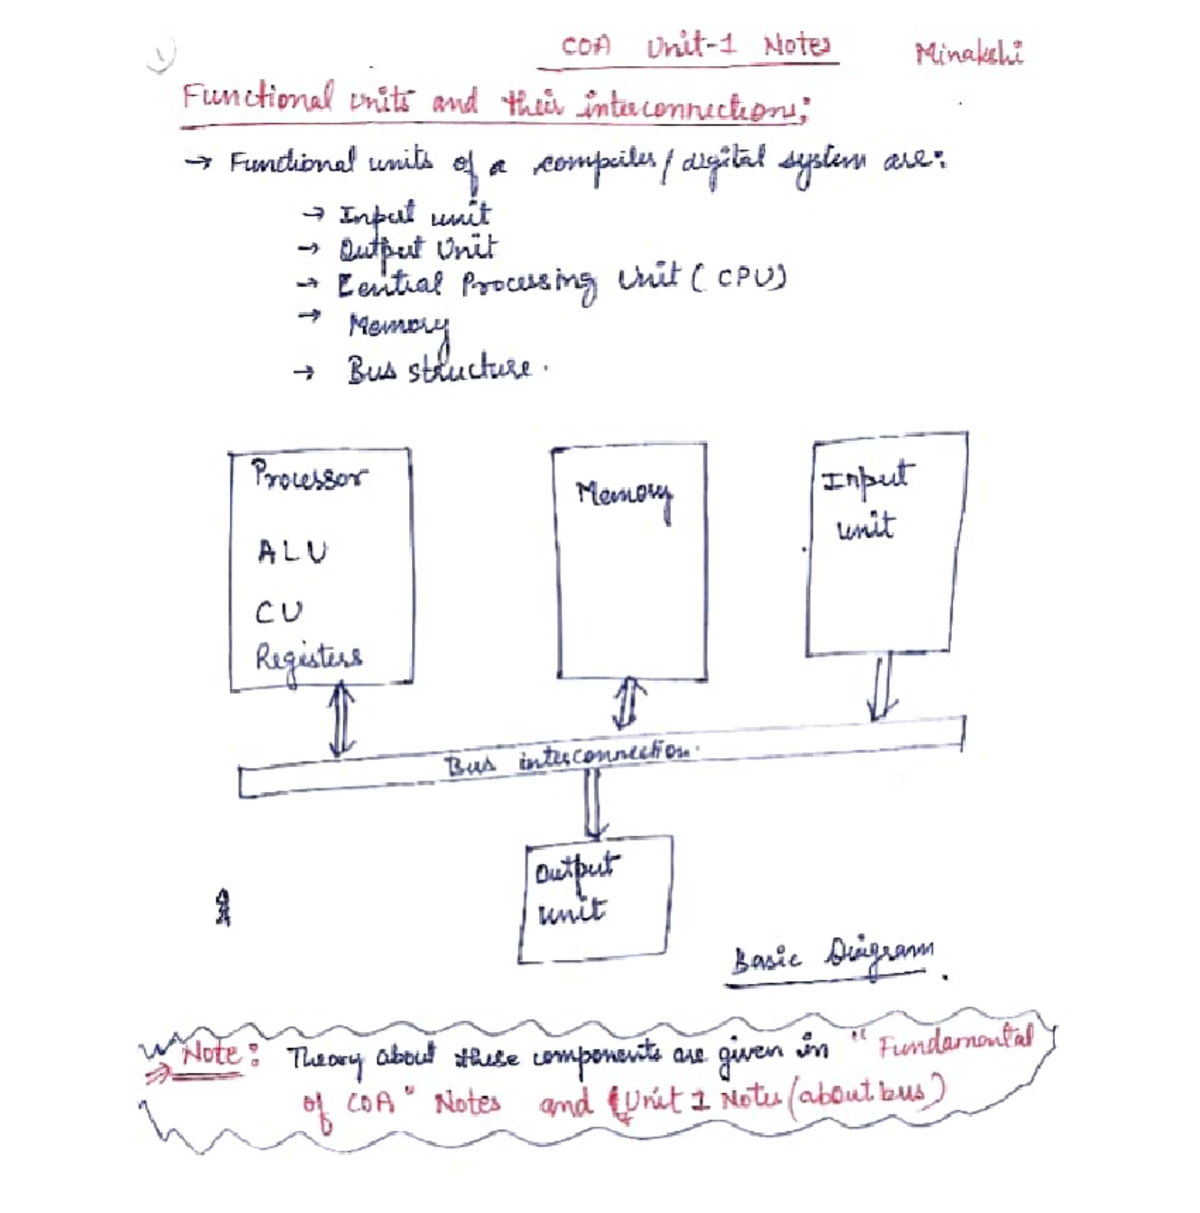 1
COA Unit-1 Notes
Minakshi
Functional units and their interconnections:
→ Functional units of a computer/digital system are:
→ Input unit
→ Output Unit
→ Central Processing Unit (CPU)
→ Memory
→ Bus structure.
Processor
ALU
CU
Registers
Memory
Input
unit
Bus interconnection.
Output
unit
Basic Diagram.
Note: Theory about these components are given in "Fundamental
of COA" Notes and (Unit 1 Notes (about bus)